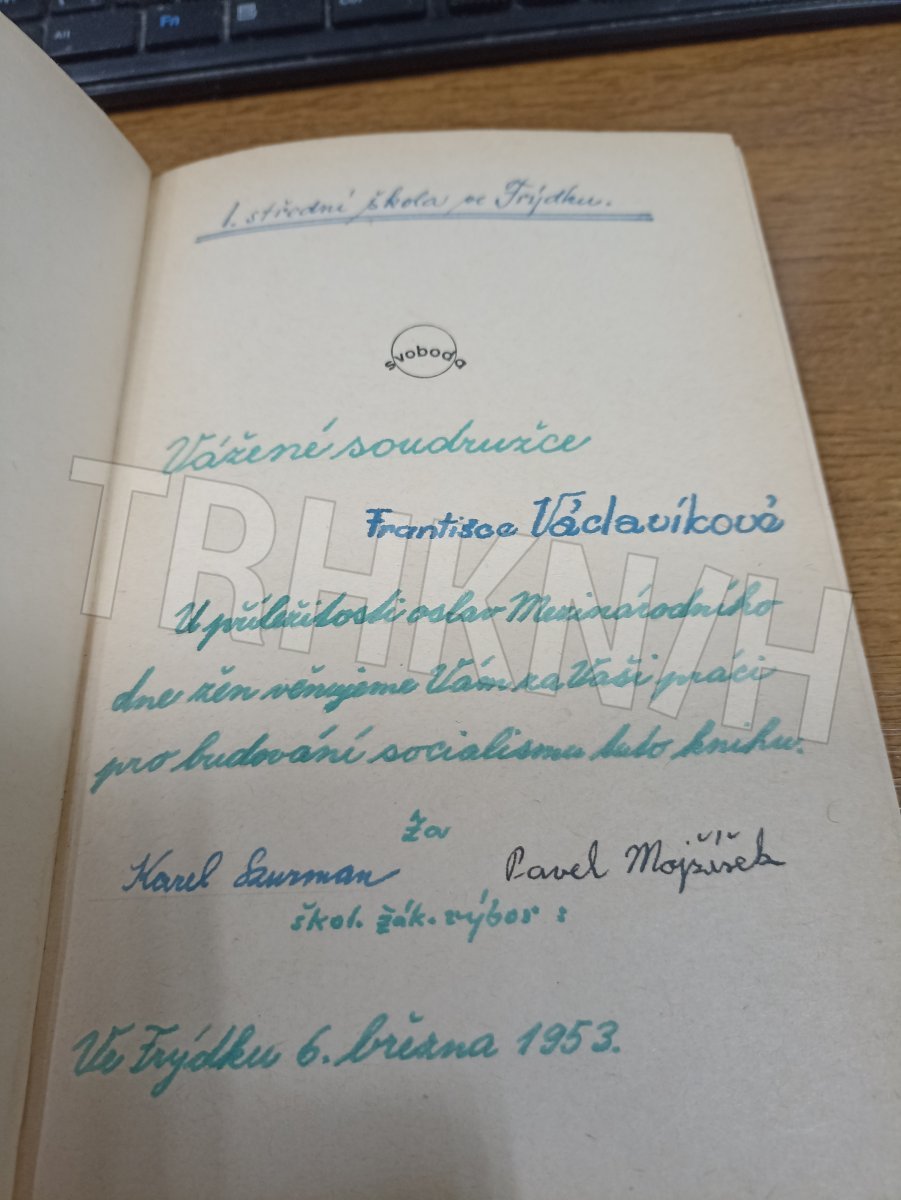 Alt
Fn
1. střední škola ve Frýdku.
svoboda
Vážené soudružce
Františce Václavíkové
U příležitosti oslav Mezinárodního
dne žen věnujeme Vám za Vaši práci
pro budování socialismu tuto knihu.
Za
Karel Szurman Pavel Mojžíšek
škol. žák. výbor :
Ve Frýdku 6. března 1953.
TRHKN/H